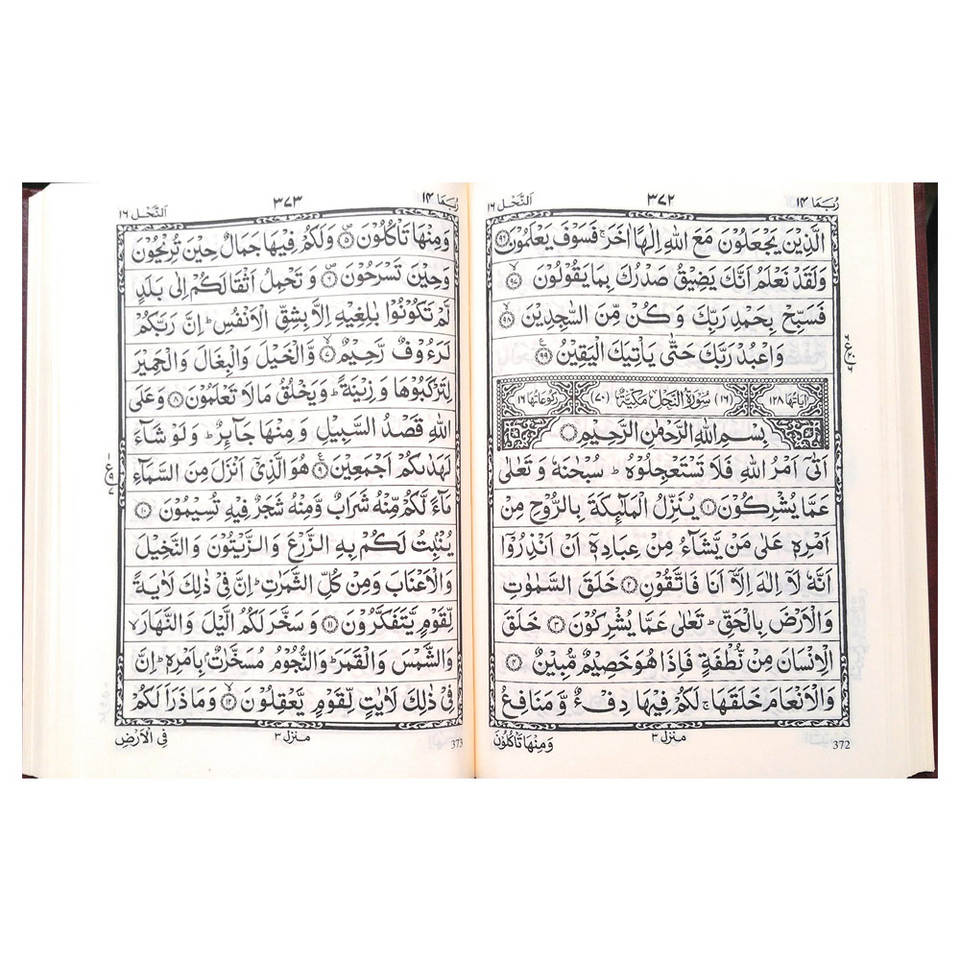 رُبَمَا ١٤
٣٧٢
اَلنَّحۡل ١٦
الَّذِيۡنَ يَجۡعَلُوۡنَ مَعَ اللّٰهِ اِلٰهًا اٰخَرَ ۚ فَسَوۡفَ يَعۡلَمُوۡنَ ﴿٩٦﴾
وَلَقَدۡ نَعۡلَمُ اَنَّكَ يَضِيۡقُ صَدۡرُكَ بِمَا يَقُوۡلُوۡنَ ﴿٩٧﴾
فَسَبِّحۡ بِحَمۡدِ رَبِّكَ وَ كُنۡ مِّنَ السّٰجِدِيۡنَ ﴿٩٨﴾
وَاعۡبُدۡ رَبَّكَ حَتّٰى يَاۡتِيَكَ الۡيَقِيۡنُ ﴿٩٩﴾
اٰيَاتُهَا ١٢٨ (١٦) سُوۡرَةُ النَّحۡلِ مَكِّيَّةٌ (٧٠) رُكُوۡعَاتُهَا ١٦
بِسۡمِ اللّٰهِ الرَّحۡمٰنِ الرَّحِيۡمِ
اَتٰٓى اَمۡرُ اللّٰهِ فَلَا تَسۡتَعۡجِلُوۡهُ ؕ سُبۡحٰنَهٗ وَ تَعٰلٰى
عَمَّا يُشۡرِكُوۡنَ ﴿١﴾ يُنَزِّلُ الۡمَلٰٓئِكَةَ بِالرُّوۡحِ مِنۡ
اَمۡرِهٖ عَلٰى مَنۡ يَّشَآءُ مِنۡ عِبَادِهٖۤ اَنۡ اَنۡذِرُوۡۤا
اَنَّهٗ لَاۤ اِلٰهَ اِلَّاۤ اَنَا فَاتَّقُوۡنِ ﴿٢﴾ خَلَقَ السَّمٰوٰتِ
وَالۡاَرۡضَ بِالۡحَقِّ ؕ تَعٰلٰى عَمَّا يُشۡرِكُوۡنَ ﴿٣﴾ خَلَقَ
الۡاِنۡسَانَ مِنۡ نُّطۡفَةٍ فَاِذَا هُوَ خَصِيۡمٌ مُّبِيۡنٌ ﴿٤﴾
وَالۡاَنۡعَامَ خَلَقَهَا ۚ لَكُمۡ فِيۡهَا دِفۡءٌ وَّ مَنَافِعُ
وَمِنۡهَا تَاۡكُلُوۡنَ
منزل ٣
372
رُبَمَا ١٤
٣٧٣
اَلنَّحۡل ١٦
وَمِنۡهَا تَاۡكُلُوۡنَ ﴿٥﴾ وَلَكُمۡ فِيۡهَا جَمَالٌ حِيۡنَ تُرِيۡحُوۡنَ
وَحِيۡنَ تَسۡرَحُوۡنَ ﴿٦﴾ وَ تَحۡمِلُ اَثۡقَالَكُمۡ اِلٰى بَلَدٍ
لَّمۡ تَكُوۡنُوۡا بٰلِغِيۡهِ اِلَّا بِشِقِّ الۡاَنۡفُسِ ؕ اِنَّ رَبَّكُمۡ
لَرَءُوۡفٌ رَّحِيۡمٌ ﴿٧﴾ وَّالۡخَيۡلَ وَالۡبِغَالَ وَالۡحَمِيۡرَ
لِتَرۡكَبُوۡهَا وَ زِيۡنَةً ؕ وَيَخۡلُقُ مَا لَا تَعۡلَمُوۡنَ ﴿٨﴾ وَعَلَى
اللّٰهِ قَصۡدُ السَّبِيۡلِ وَ مِنۡهَا جَآئِرٌ ؕ وَلَوۡ شَآءَ
لَهَدٰٮكُمۡ اَجۡمَعِيۡنَ ﴿٩﴾ هُوَ الَّذِيۡۤ اَنۡزَلَ مِنَ السَّمَآءِ
مَآءً لَّكُمۡ مِّنۡهُ شَرَابٌ وَّمِنۡهُ شَجَرٌ فِيۡهِ تُسِيۡمُوۡنَ ﴿١٠﴾
يُنۡۢبِتُ لَكُمۡ بِهِ الزَّرۡعَ وَالزَّيۡتُوۡنَ وَالنَّخِيۡلَ
وَالۡاَعۡنَابَ وَمِنۡ كُلِّ الثَّمَرٰتِ ؕ اِنَّ فِيۡ ذٰلِكَ لَاٰيَةً
لِّقَوۡمٍ يَّتَفَكَّرُوۡنَ ﴿١١﴾ وَ سَخَّرَ لَكُمُ الَّيۡلَ وَالنَّهَارَ ۙ
وَالشَّمۡسَ وَالۡقَمَرَ ؕ وَالنُّجُوۡمُ مُسَخَّرٰتٌۢ بِاَمۡرِهٖ ؕ اِنَّ
فِيۡ ذٰلِكَ لَاٰيٰتٍ لِّقَوۡمٍ يَّعۡقِلُوۡنَ ﴿١٢﴾ وَمَا ذَرَاَ لَكُمۡ
فِي الۡاَرۡضِ
منزل ٣
373